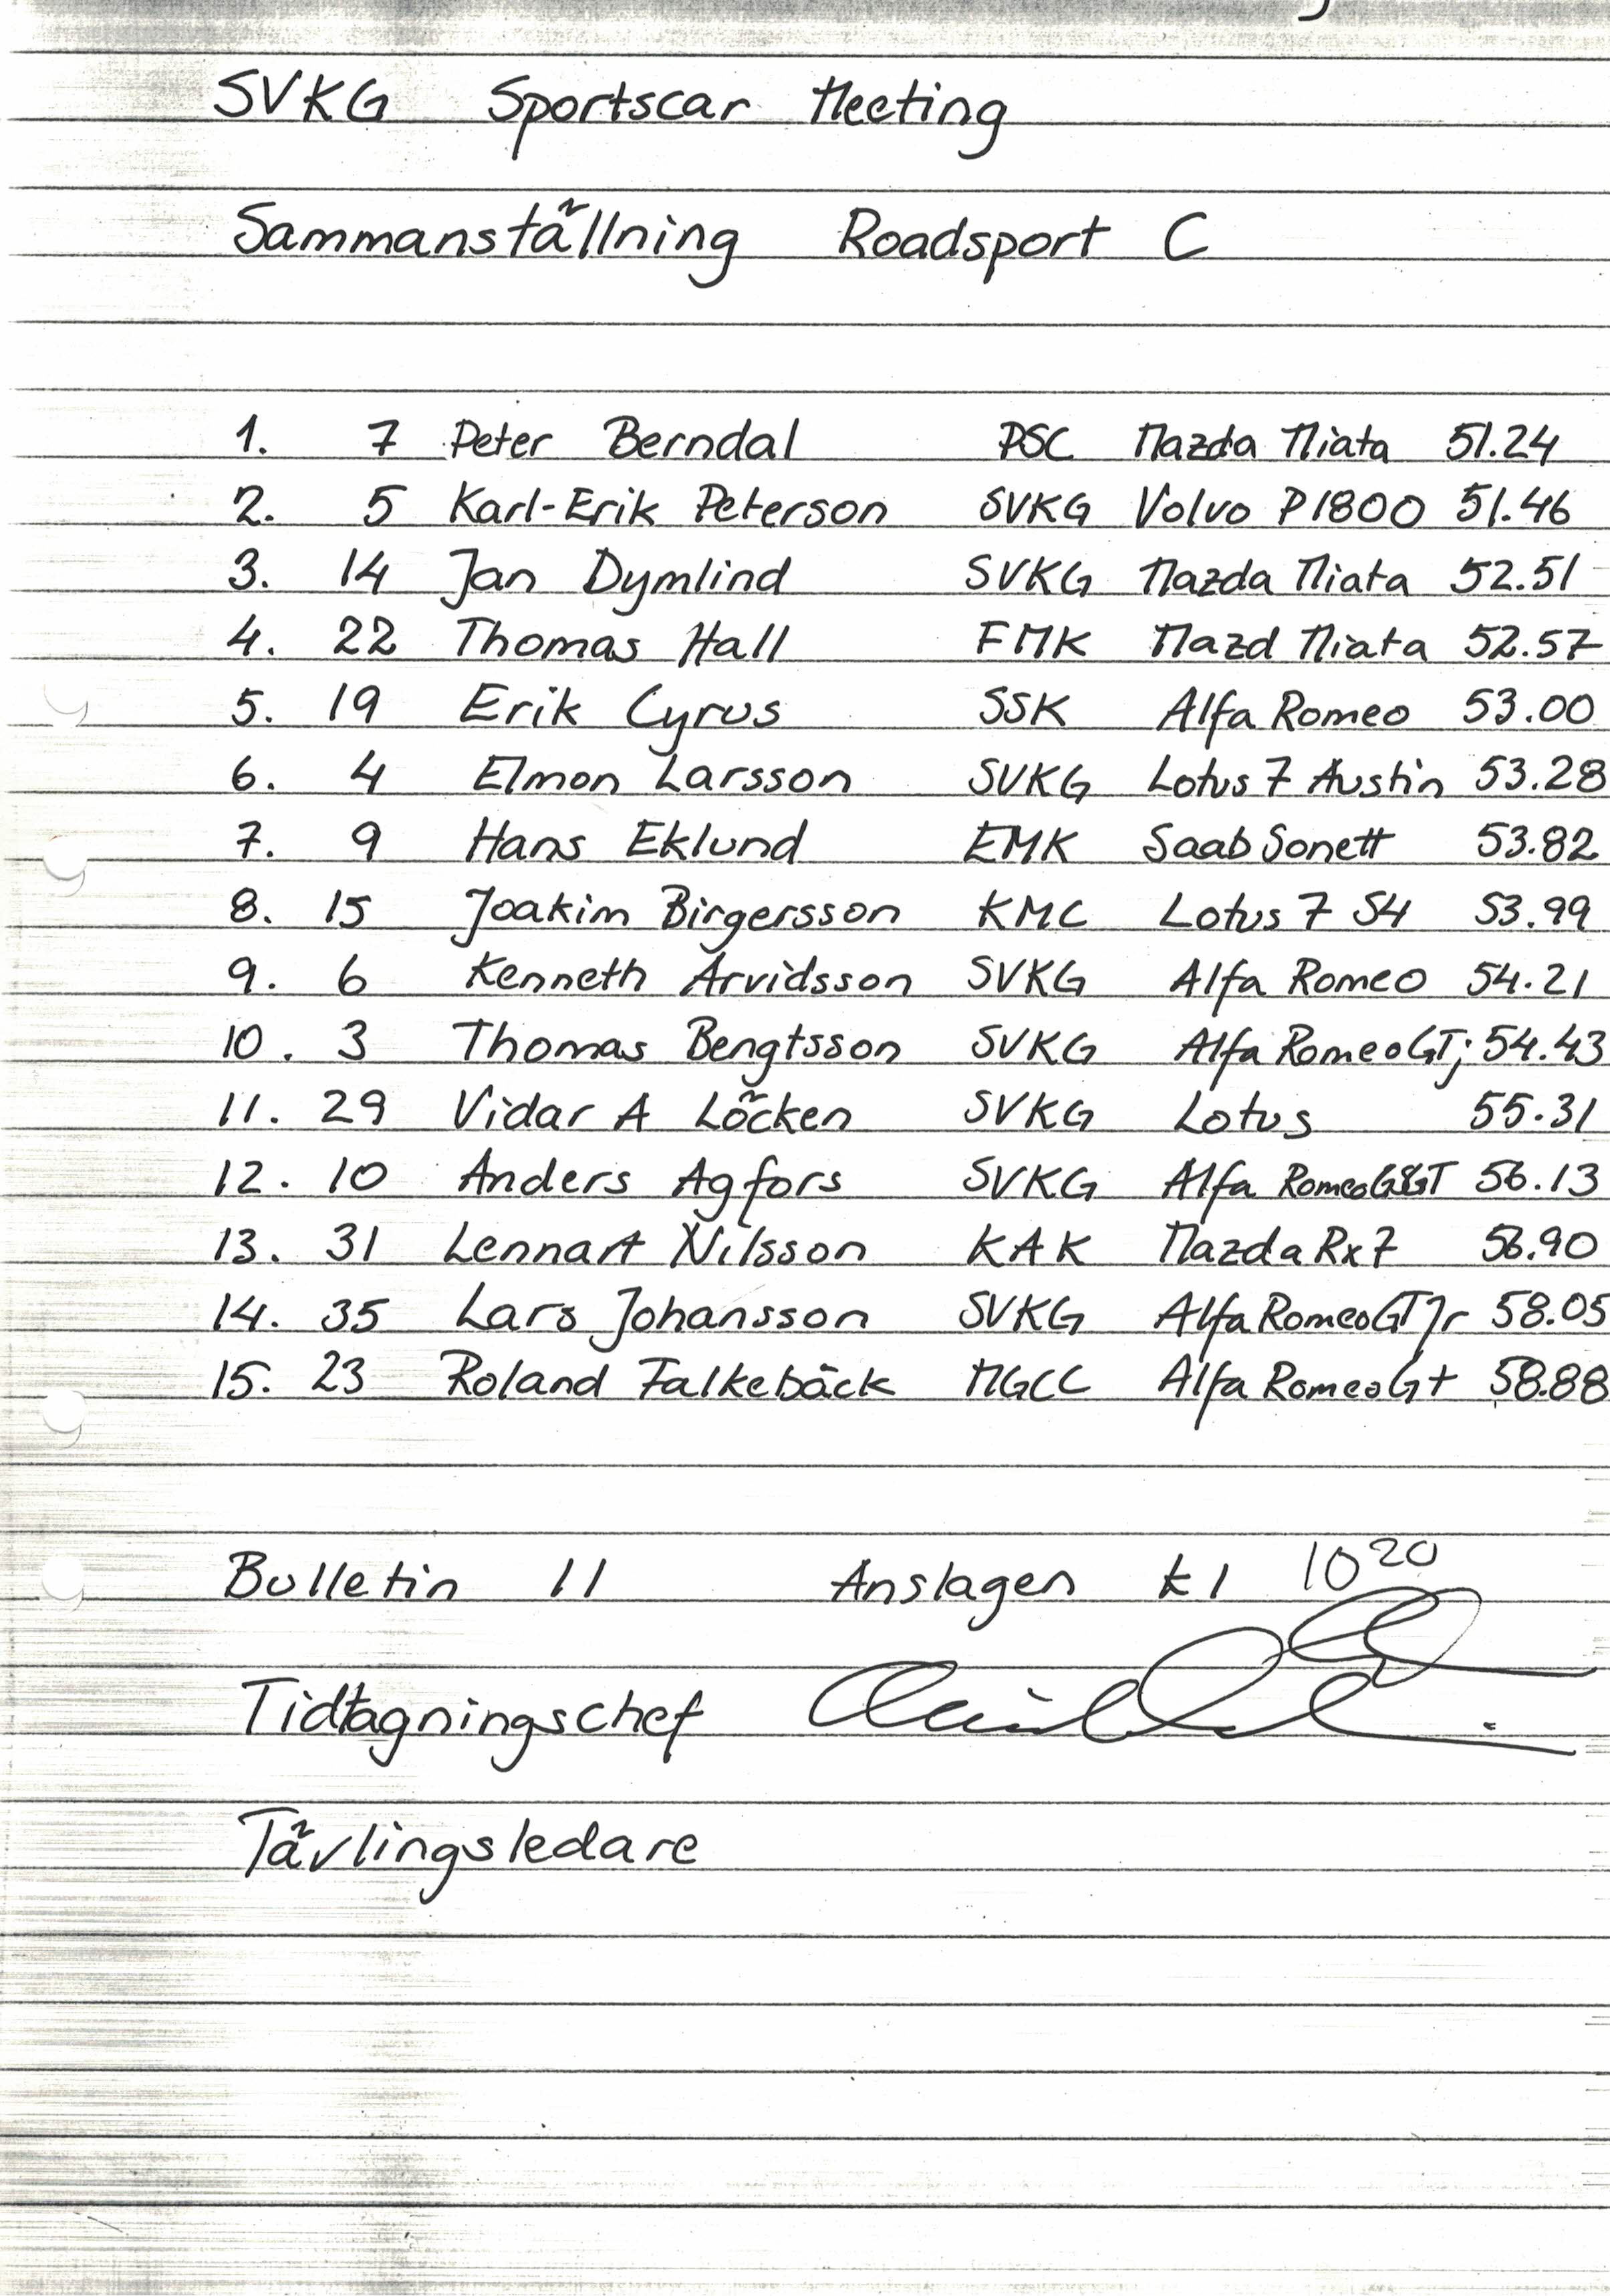 SVKG Sportscar Meeting
Sammanställning Roadsport C
1. 7 Peter Berndal PSC Mazda Miata 51.24
2. 5 Karl-Erik Peterson SVKG Volvo P1800 51.46
3. 14 Jan Dymlind SVKG Mazda Miata 52.51
4. 22 Thomas Hall FMK Mazd Miata 52.57
5. 19 Erik Cyrus SSK Alfa Romeo 53.00
6. 4 Elmon Larsson SVKG Lotus 7 Austin 53.28
7. 9 Hans Eklund EMK Saab Sonett 53.82
8. 15 Joakim Birgersson KMC Lotus 7 S4 53.99
9. 6 Kenneth Arvidsson SVKG Alfa Romeo 54.21
10. 3 Thomas Bengtsson SVKG Alfa Romeo GTj 54.43
11. 29 Vidar A Löcken SVKG Lotus 55.31
12. 10 Anders Agfors SVKG Alfa Romeo 56.13
13. 31 Lennart Nilsson KAK Mazda Rx7 56.90
14. 35 Lars Johansson SVKG Alfa Romeo GT Jr 58.05
15. 23 Roland Falkebäck MGCC Alfa Romeo Gt 58.88
Bulletin 11 Anslagen kl 10 20
Tidtagningschef
Tävlingsledare